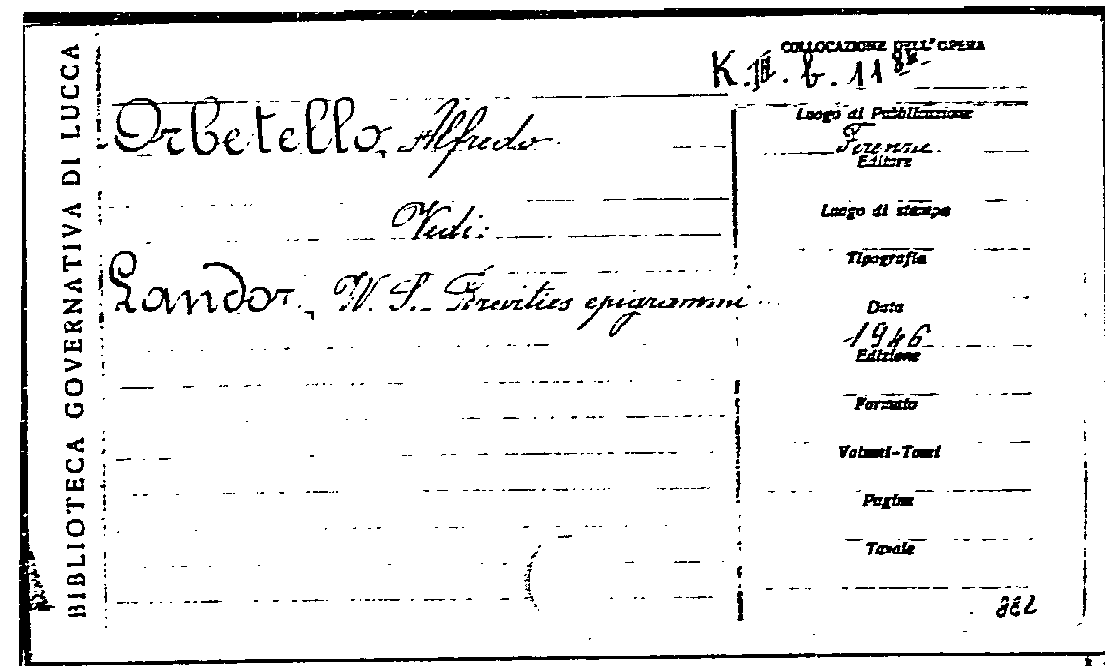 BIBLIOTECA GOVERNATIVA DI LUCCA
COLLOCAZIONE DELL'OPERA
K. III. b. 11
Orbetello, Alfredo
Vedi:
Landor, W. S. epigrammi
Luogo di Pubblicazione
Firenze
Editore
Luogo di stampa
Tipografia
Data
1946
Edizione
Formato
Volumi-Tomi
Pagine
Tavole
882